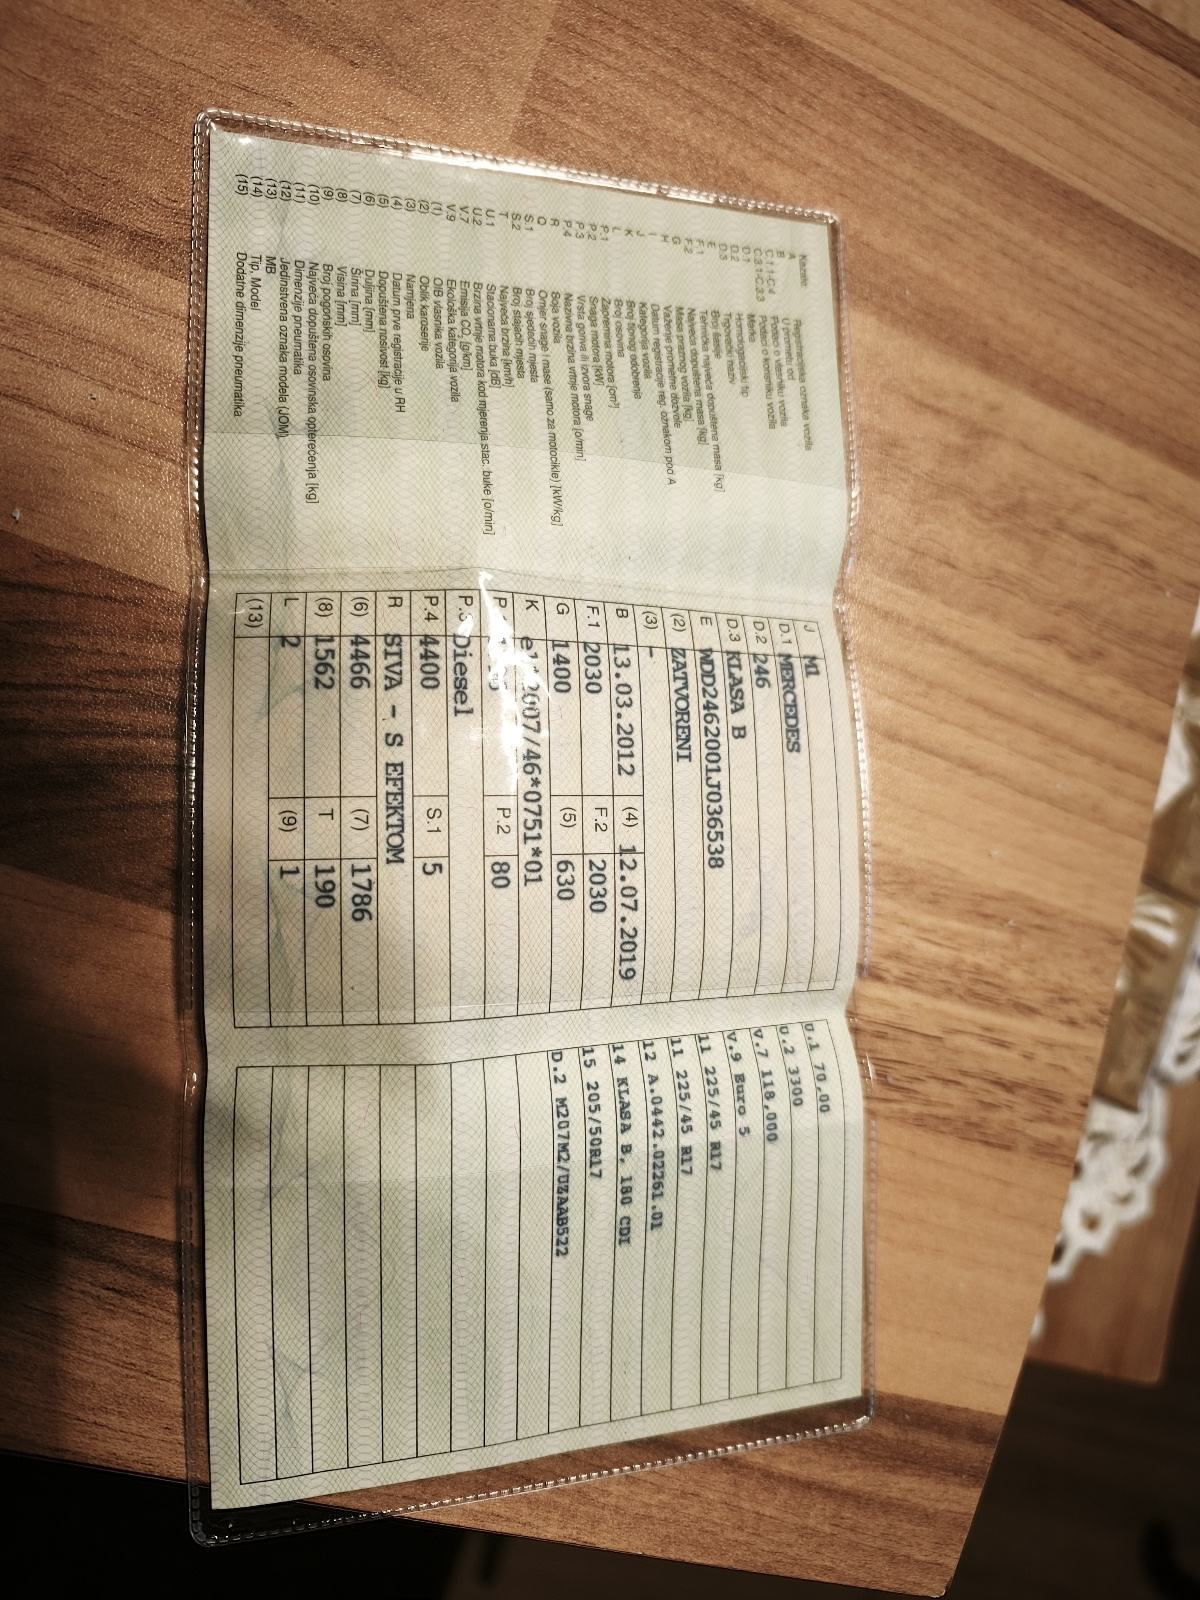 Kazalo
A Registracijska oznaka vozila
B U prometu od
C.1.1-C.4 Podaci o vlasniku vozila
C.3.1-C.3.3 Podaci o korisniku vozila
D.1 Marka
D.2 Homologacijski tip
D.3 Trgovački naziv
E Broj šasije
F.1 Tehnička najveća dopuštena masa [kg]
F.2 Najveća dopuštena masa [kg]
G Masa praznog vozila [kg]
H Važenje prometne dozvole
I Datum registracije reg. oznakom pod A
J Kategorija vozila
K Broj tipnog odobrenja
L Broj osovina
P.1 Zapremina motora [cm³]
P.2 Snaga motora [kW]
P.3 Vrsta goriva ili izvora snage
P.4 Nazivna brzina vrtnje motora [o/min]
R Boja vozila
Q Omjer snage i mase (samo za motocikle) [kW/kg]
S.1 Broj sjedećih mjesta
S.2 Broj stajaćih mjesta
T Najveća brzina [km/h]
U.1 Stacionarna buka [dB]
U.2 Brzina vrtnje motora kod mjerenja stac. buke [o/min]
V.7 Emisija CO₂ [g/km]
V.9 Ekološka kategorija vozila
(1) OIB vlasnika vozila
(2) Oblik karoserije
(3) Namjena
(4) Datum prve registracije u RH
(5) Dopuštena nosivost [kg]
(6) Duljina [mm]
(7) Širina [mm]
(8) Visina [mm]
(9) Broj pogonskih osovina
(10) Najveća dopuštena osovinska opterećenja [kg]
(11) Dimenzije pneumatika
(12) Jedinstvena oznaka modela (JOM)
(13) MB
(14) Tip, Model
(15) Dodatne dimenzije pneumatika
J M1
D.1 MERCEDES
D.2 246
D.3 KLASA B
E WDD2462001J036538
(2) ZATVORENI
(3) -
B 13.03.2012 (4) 12.07.2019
F.1 2030 F.2 2030
G 1400 (5) 630
K 2007/46*0751*01
P.2 80
P.3 Diesel
P.4 4400 S.1 5
R SIVA - S EFEKTOM
(6) 4466 (7) 1786
(8) 1562 T 190
L 2 (9) 1
(13)
U.1 70,00
U.2 3300
V.7 118,000
V.9 Euro 5
11 225/45 R17
11 225/45 R17
12 A.0442.02261.01
14 KLASA B, 180 CDI
15 205/50R17
D.2 M207M2/UZAAB522